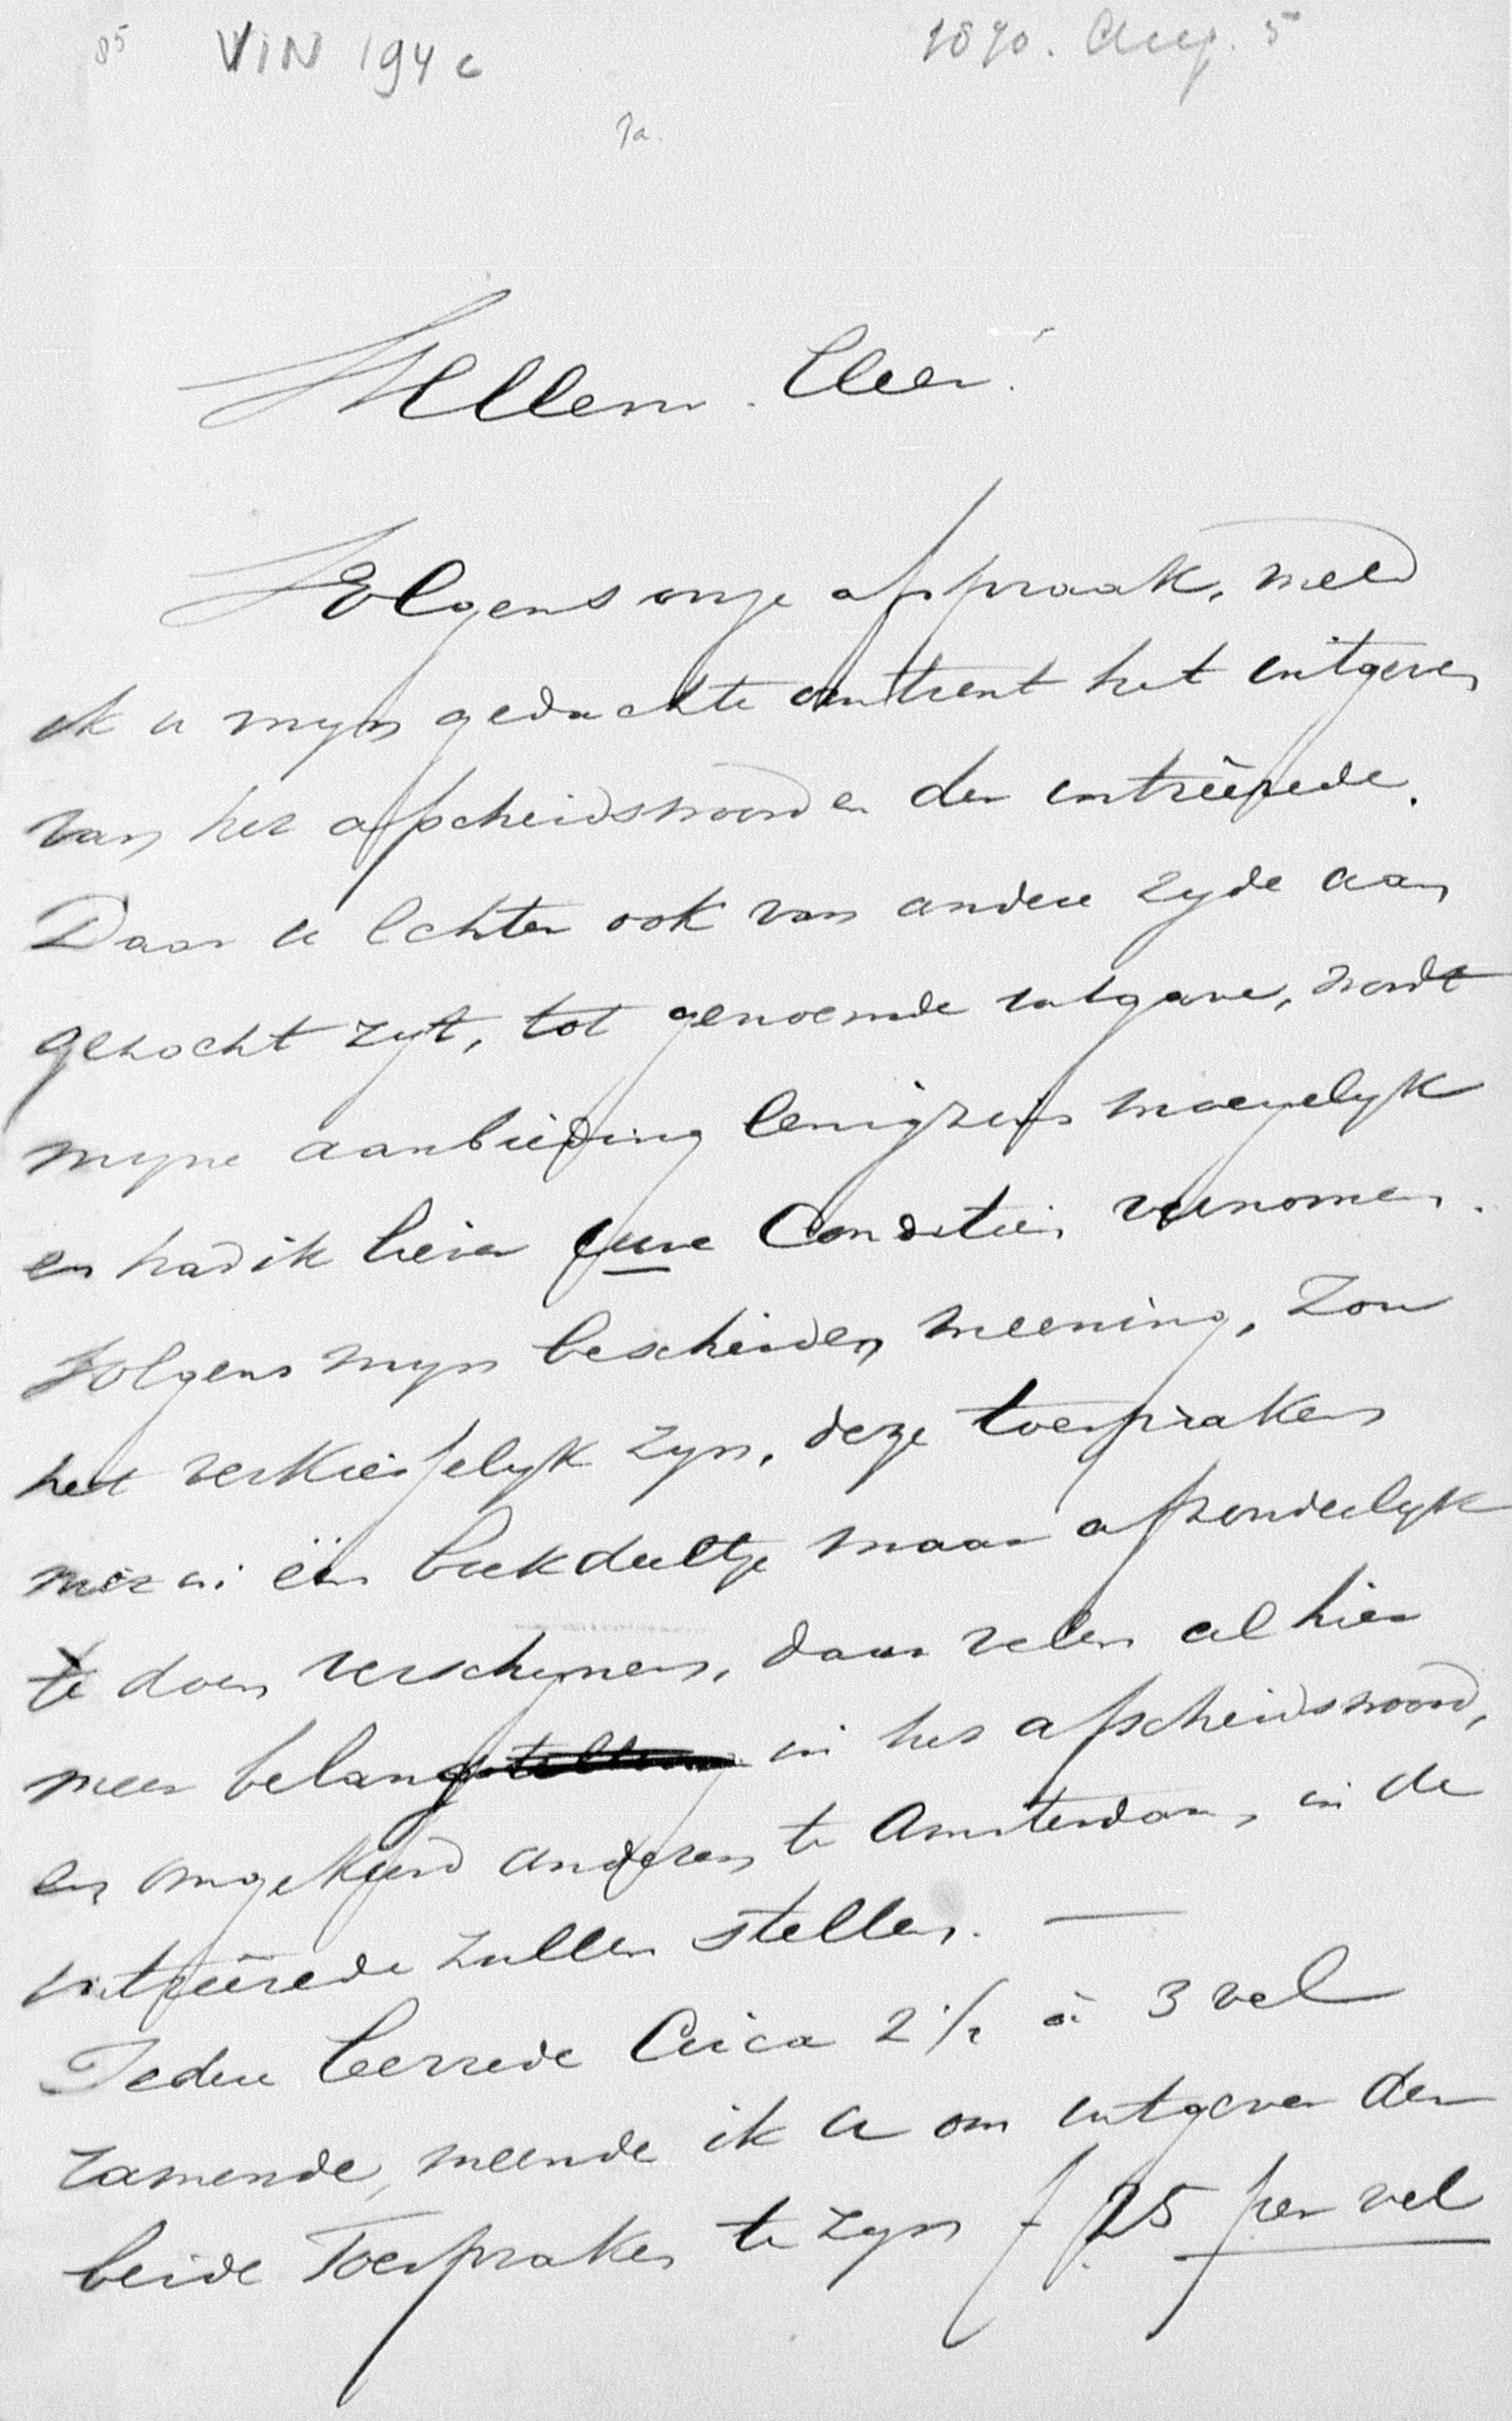 85 VIN 194c 1870. Aug. 5
7a.
WelEerw. Heer!
Volgens onze afspraak, meld
ik u myn gedachte omtrent het uitgeven
van het afscheidswoord en der intreêrede.
Daar u echter ook van andere zyde aan
gezocht zyt, tot genoemde uitgave, wordt
myne aanbieding eenigzins moeyelyk
en had ik liever uwe Conditiën vernomen.
Volgens myn bescheiden meening, zou
het verkiesselyk zyn, deze toespraken
niet in één boekdeeltje maar afzonderlyk
te doen verschynen, daar velen alhier
meer belang in het afscheidswoord,
en omgekeerd anderen te Amsterdam, in de
intreêrede zullen stellen. —
Iedere leerrede Circa 2 1/2 à 3 vel
zamende, meende ik u om uitgever der
beide Toespraken te zyn f 25 per vel